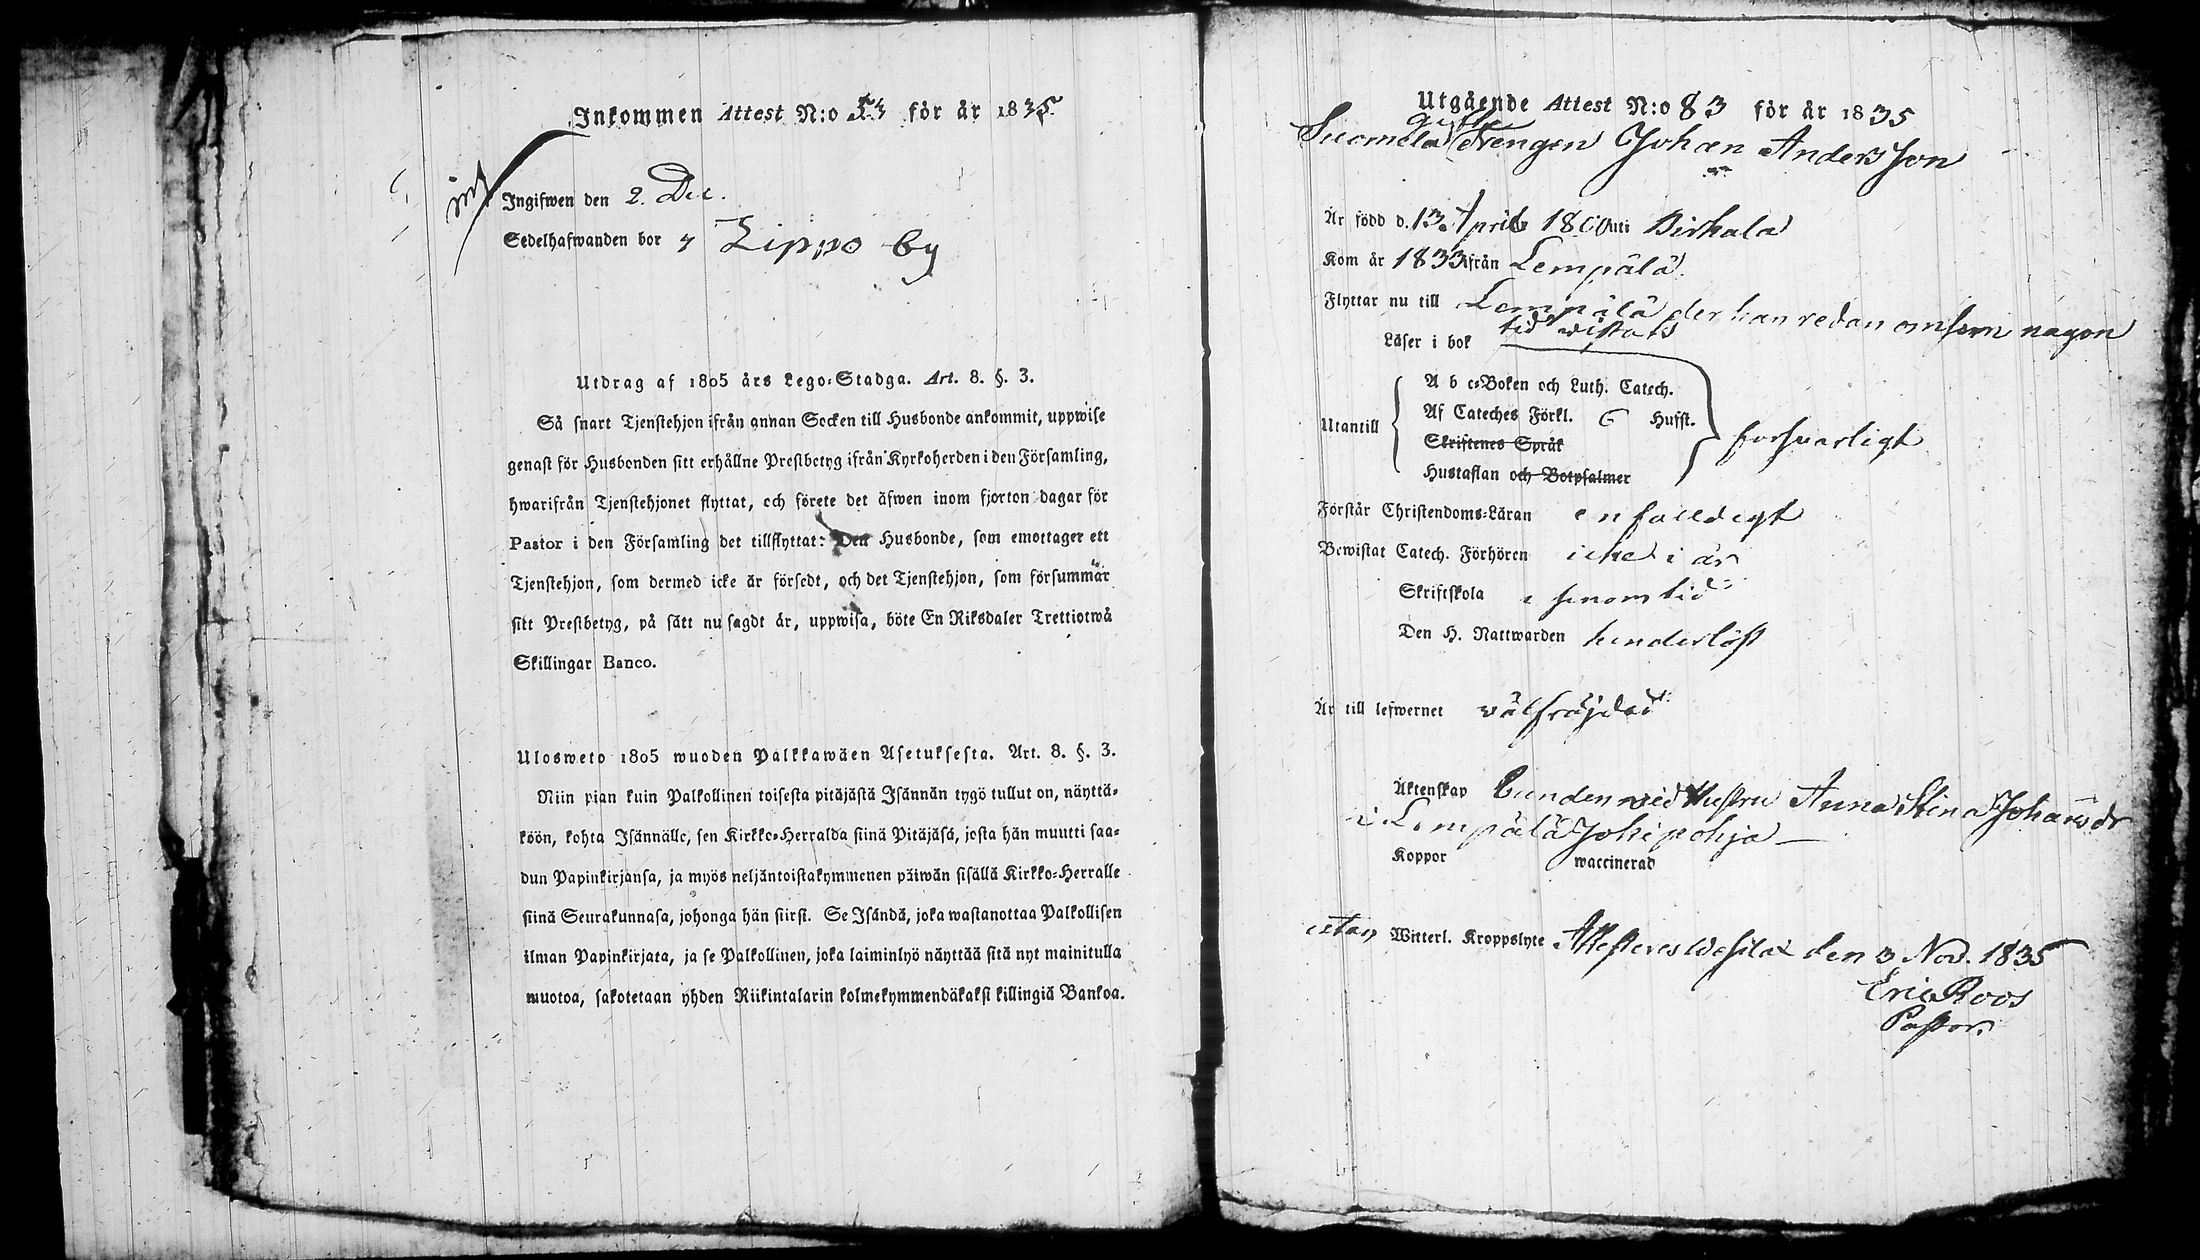 Inkommen Attest N:o 53 för år 1835
Ingifwen den 2. Dec.
Sedelhafwanden bor i Lippo by
Utdrag af 1805 års Lego-Stadga. Art. 8. §. 3.
Så snart Tjenstehjon ifrån annan Socken till Husbonde ankommit, uppwise
genast för Husbonden sitt erhållne Prestbetyg ifrån Kyrkoherden i den Församling,
hwarifrån Tjenstehjonet flyttat, och förete det äfwen inom fjorton dagar för
Pastor i den Församling det tillflyttat: Den Husbonde, som emottager ett
Tjenstehjon, som dermed icke är försedt, och det Tjenstehjon, som försummar
sitt Prestbetyg, på sätt nu sagdt är, uppwisa, böte En Riksdaler Trettiotwå
Skillingar Banco.
Ulosweto 1805 wuoden Palkkawäen Asetuksesta. Art. 8. §. 3.
Niin pian kuin Palkollinen toisesta pitäjästä Isännän tygö tullut on, näyttä-
köön, kohta Isännälle, sen Kirkko-Herralda siinä Pitäjäsä, josta hän muutti saa-
dun Papinkirjansa, ja myös neljäntoistakymmenen päiwän sisällä Kirkko-Herralle
siinä Seurakunnasa, johonga hän siirst. Se Isändä, joka wastanottaa Palkollisen
ilman Papinkirjata, ja se Palkollinen, joka laiminlyö näyttää sitä nyt mainitulla
muotoa, sakotetaan yhden Riikintalarin kolmekymmendäkaksi killingiä Bankoa.
Utgående Attest N:o 83 för år 1835
gifte
Suomela Drengen Johan Andersson
Är född d. 13 April 1800 uti Birkala
Kom år 1833 ifrån Lempälä
Flyttar nu till Lempälä der han redan omsom någon
tid wistats
Läser i bok
A b c-Boken och Luth. Catech.
Utantill Af Cateches Förkl. Hufst. forsvarligt
Skriftenes Språk
Hustaflan och Botpsalmer
Förstår Christendoms-Läran enfalldigt
Bewistat Catech. Förhören icke i år
Skriftskola i sinom tid
Den H. Nattwarden hinderlöst
Är till lefwernet välfräjdad
Äktenskap bunden wid Hustru Anna Stina Johansdr
i Lempälä Jokipohja
Koppor waccinerad
utan Witterl. Kroppslyte Attesteras Wesilax den 3 Nov. 1835
Eric Roos
Pastor.